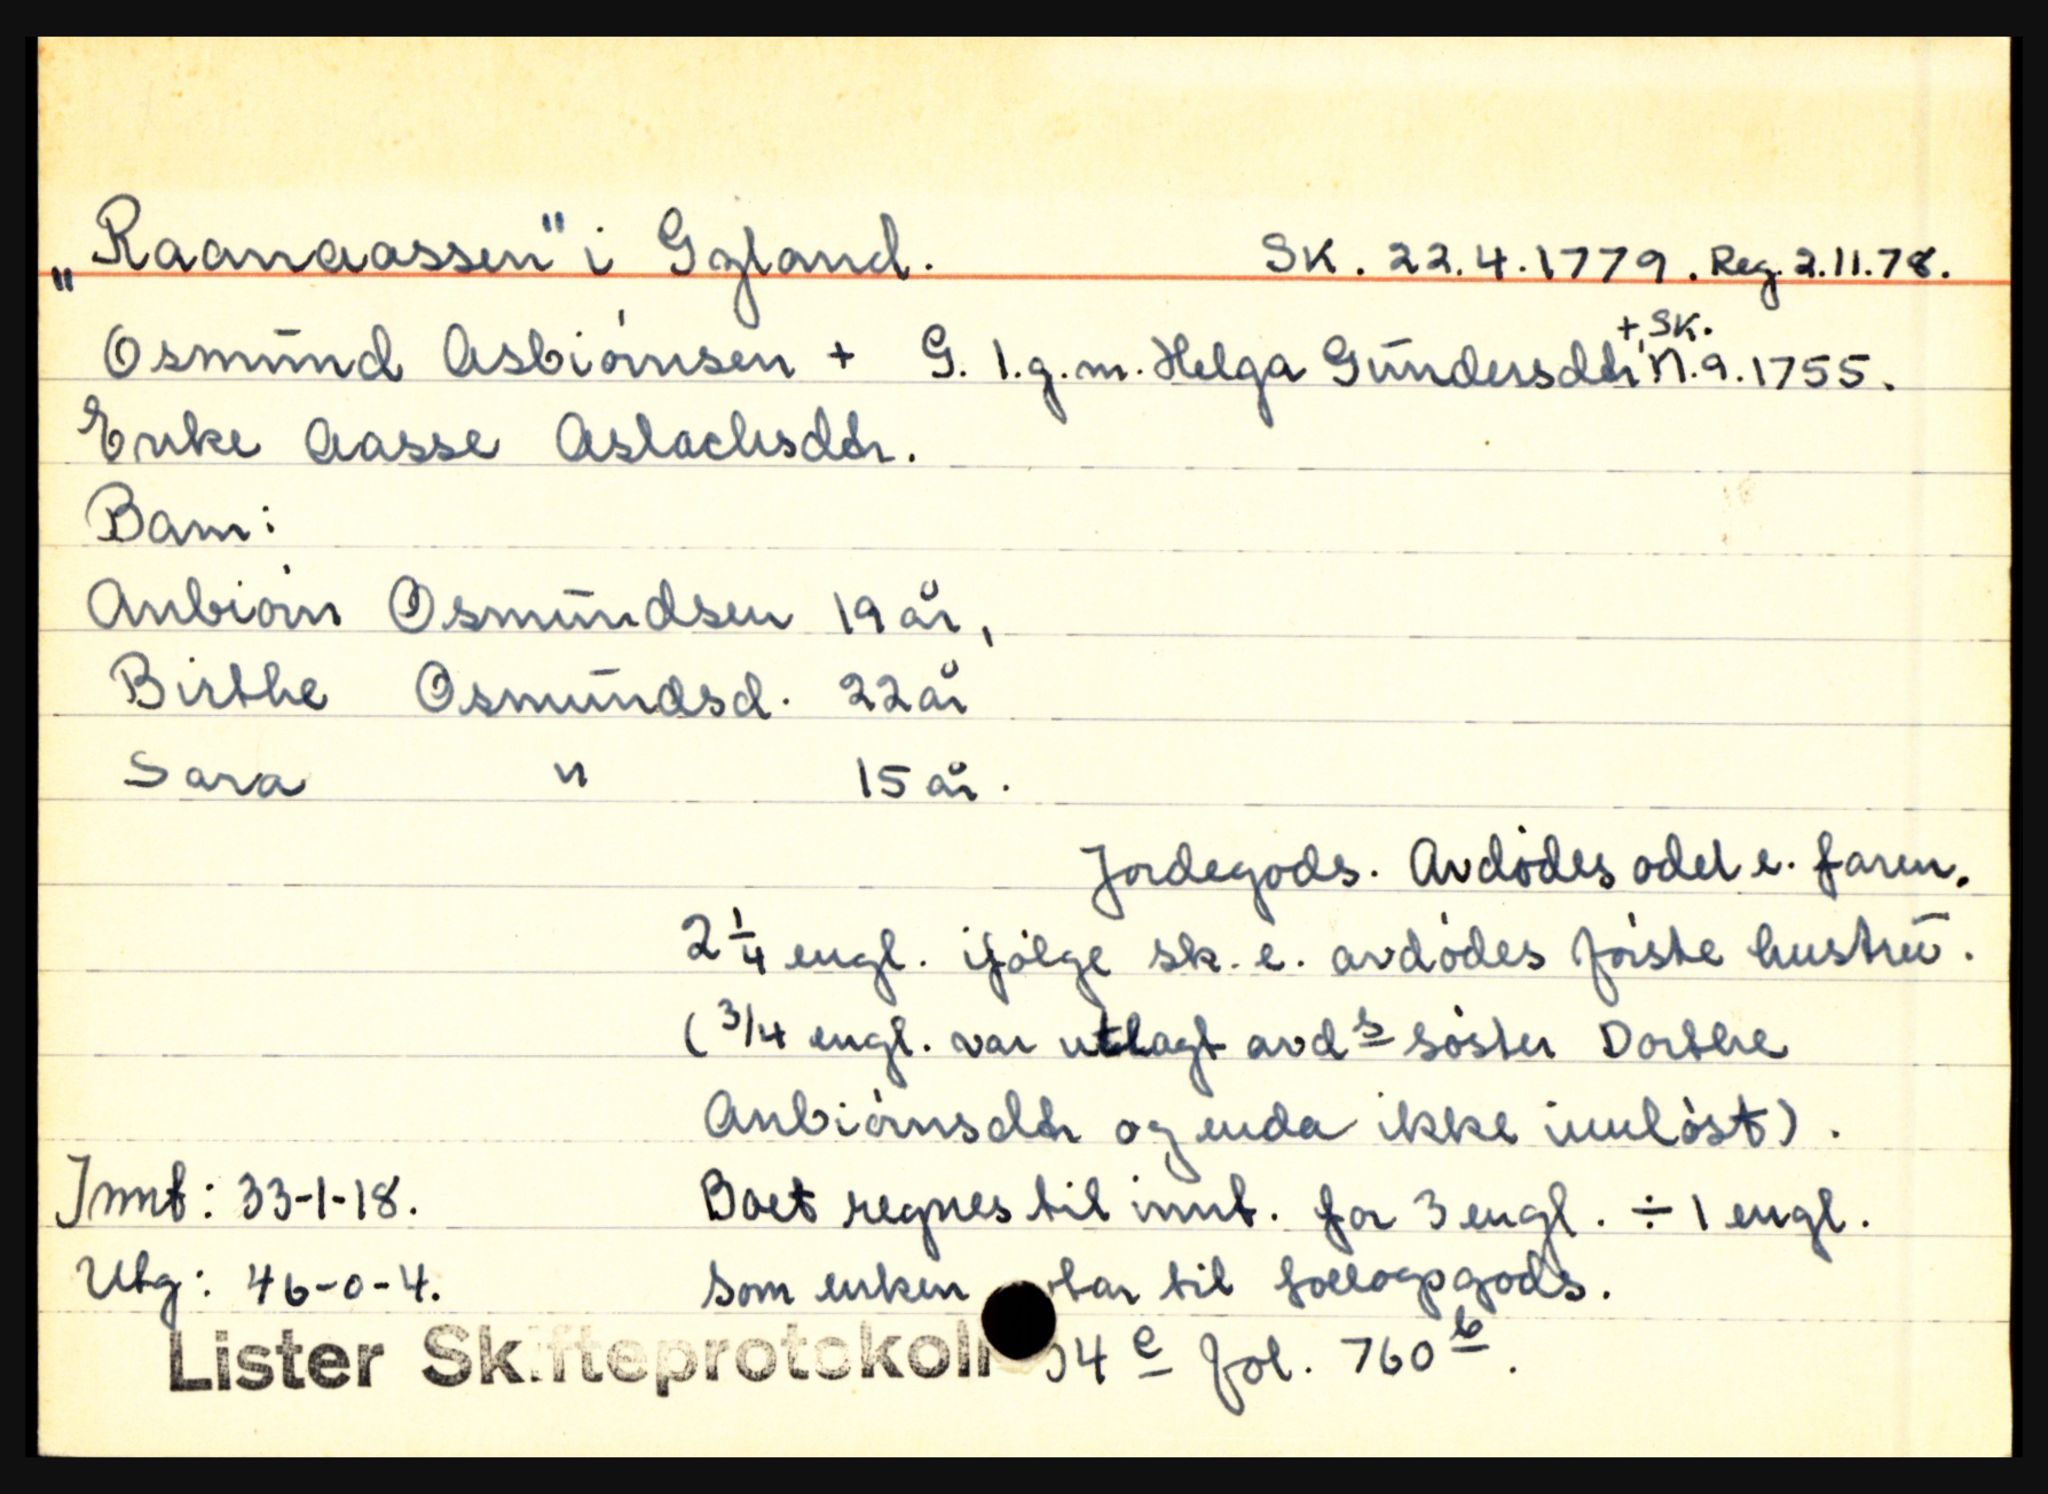 „Raanaassen" i Gyland. SK. 22.4.1779. Reg. 2.11.78.
Osmund Asbiørnsen + G. 1.g.m. Helga Gundersdtr +, SK. 17.9.1755.
Enke Aasse Aslachsdtr.
Barn:
Anbiørn Osmundsen 19 år,
Birthe Osmundsd. 22 år
Sara " 15 år.
Jordegods. Avdødes odel e. faren.
2 1/4 engl. ifølge sk. e. avdødes første hustru.
(3/4 engl. var utlagt avds søster Dorthe
Anbiørnsdtr og enda ikke innløst).
Innt: 33-1-18. Boet regnes til innt. for 3 engl. ÷ 1 engl.
Utg: 46-0-4. som enken tar til foelogsgods.
Lister Skifteprotokoll 4 e fol. 760 b.